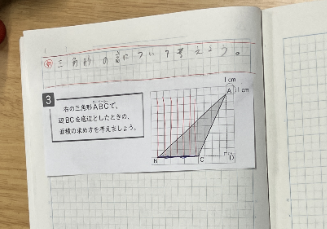 め 三角形の高さについて考えよう。
3
右の三角形ABCで、
辺BCを底辺としたときの、
面積の求め方を考えましょう。
1cm
A 1cm
B C D